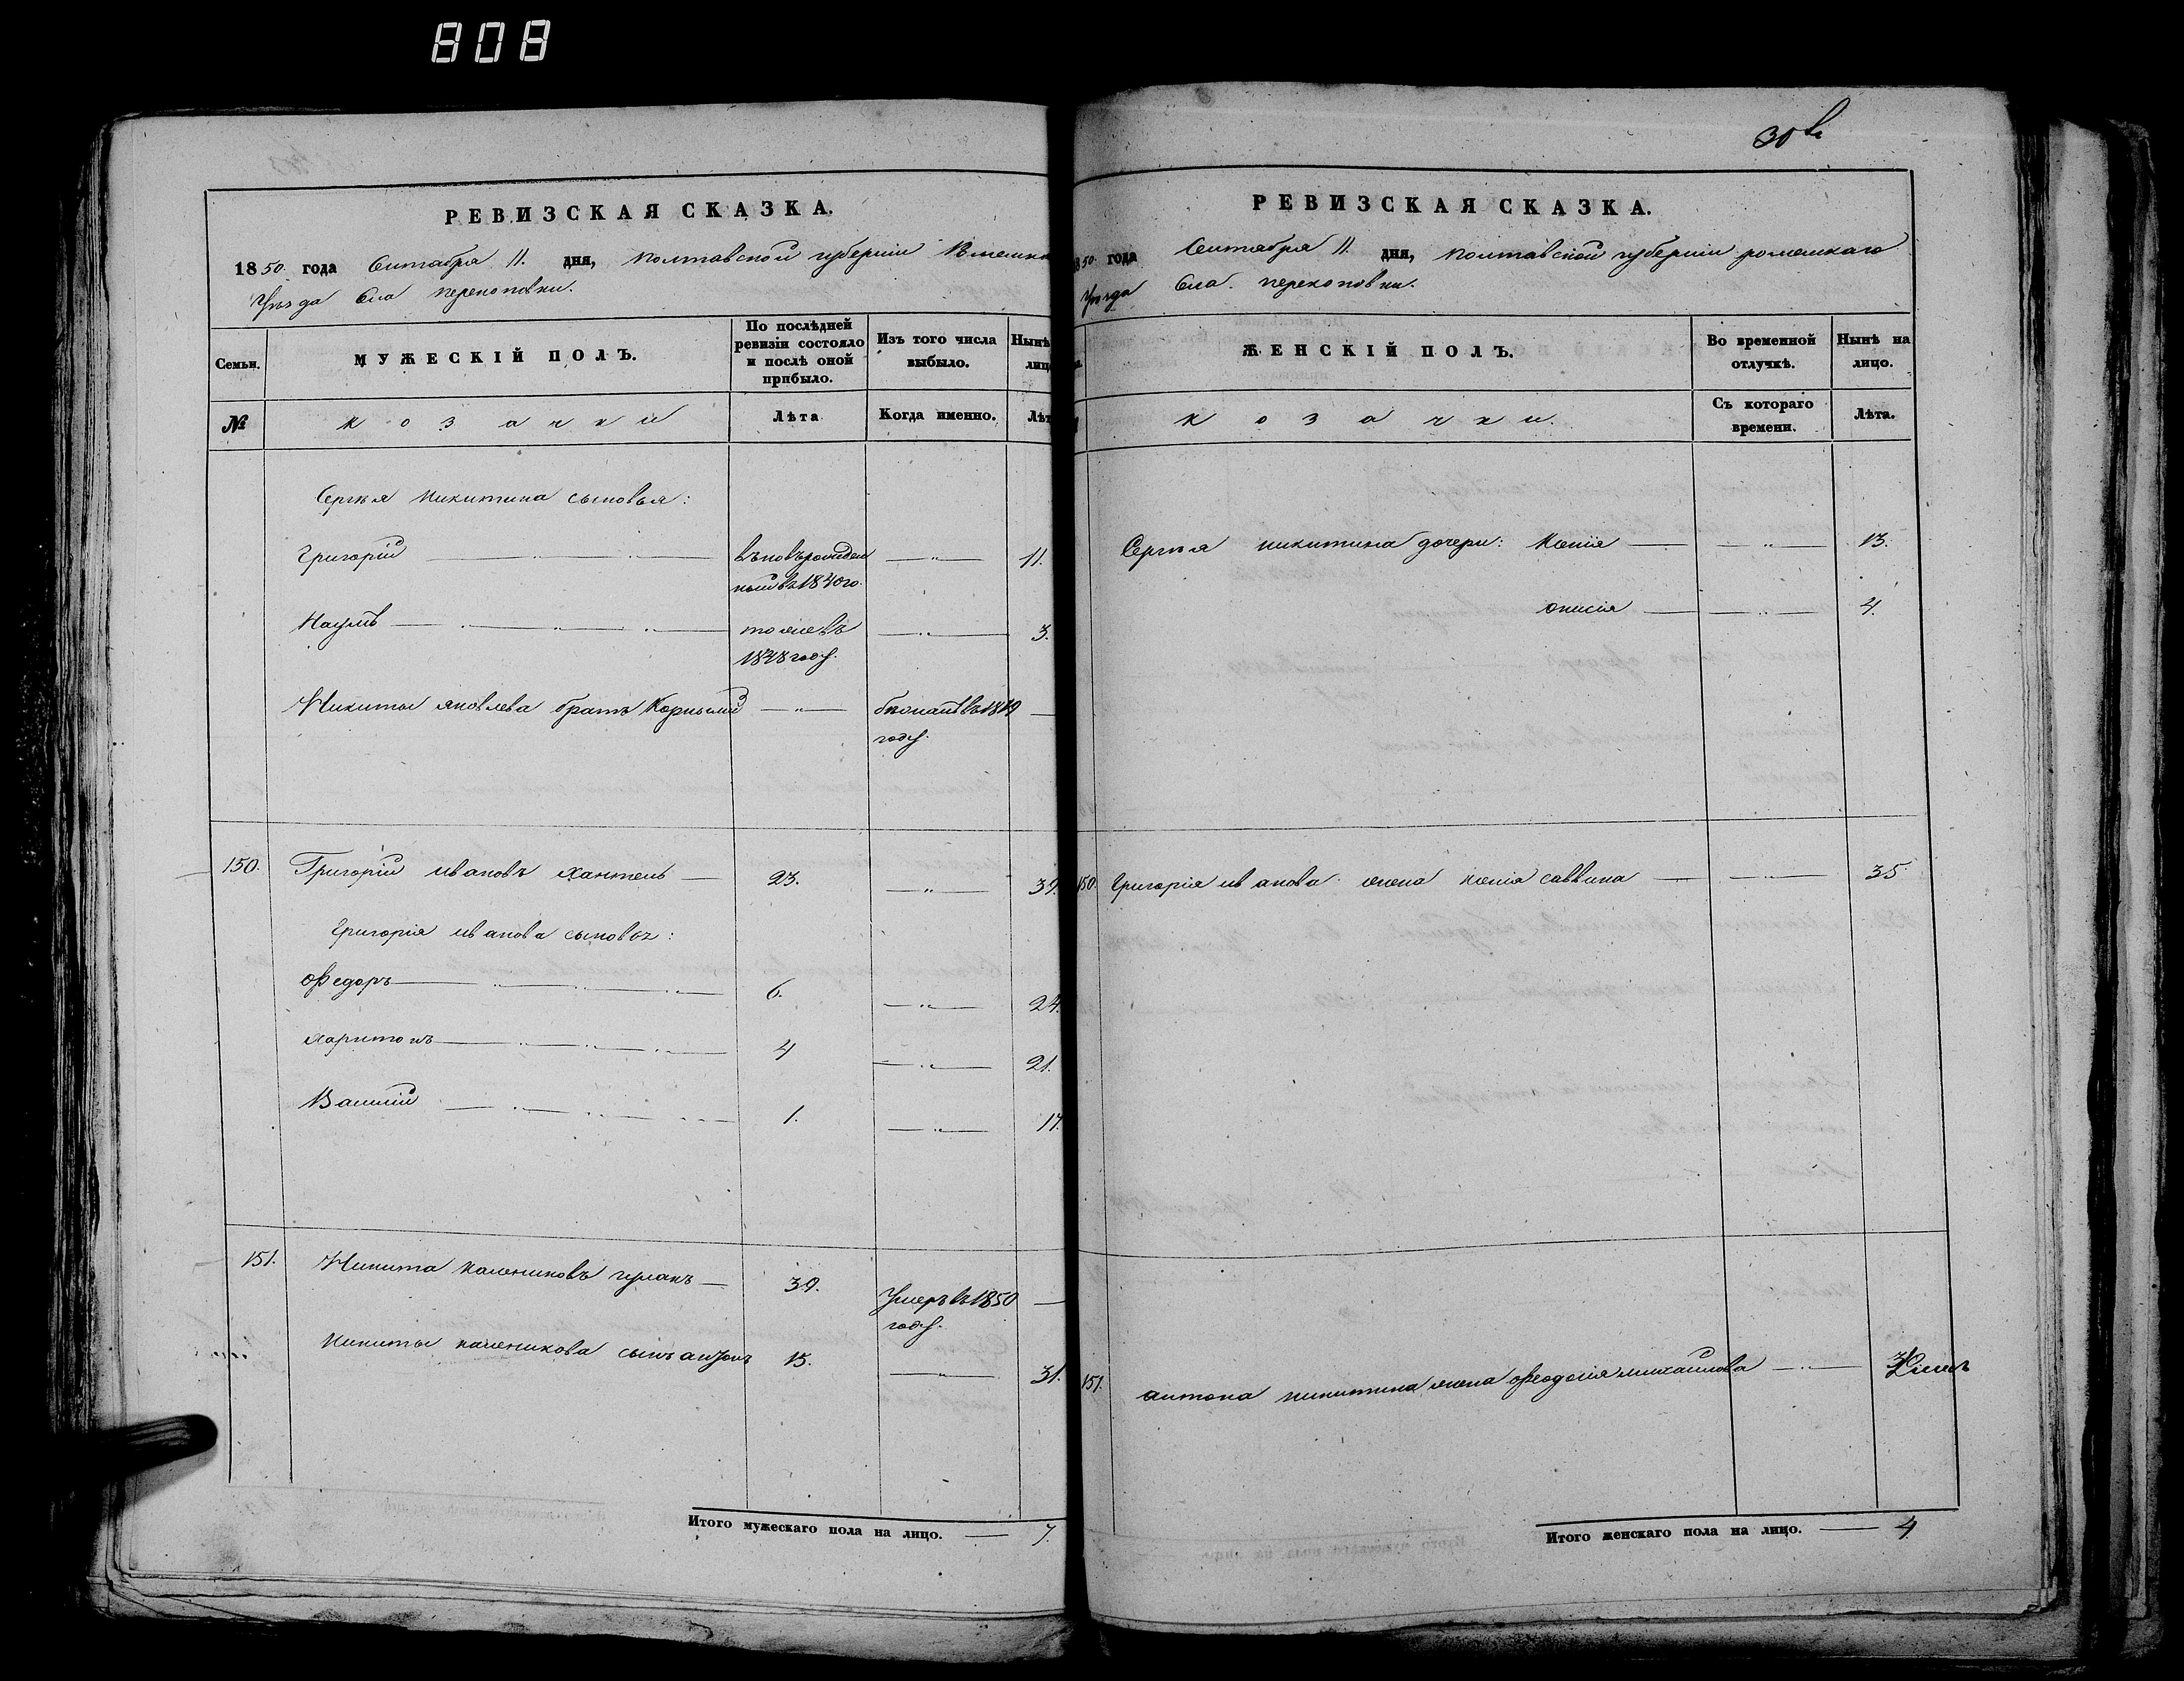 808
РЕВИЗСКАЯ СКАЗКА.
1850 года Сентября 11. дня, Полтавской губернии Роменска
Уѣзда Села Перекоповки.
Семьи.
МУЖЕСКІЙ ПОЛЪ.
По послѣдней ревизіи состояло и послѣ оной прибыло.
Изъ того числа выбыло.
Нынѣ лиц
№
козачки
Лѣта
Когда именно.
Лѣт
Сергѣя Никитина сыновья:
Григорій — " — " — — " — 11.
ный въ 1840 го.
Наумъ — " — " — тоже въ — " — 3.
1848 году.
Никиты Яковлева братъ Корнилій — " — —
году.
150. Григорій Ивановъ Хантель — 23. — " — 39.
Григорія Иванова сыновья:
Федоръ — " — " — 6. — " — 24.
Харитонъ — " — " — 4 — " — 21.
Василій — " — " — 1. — " — 17.
151. Никита Калениковъ — 39. Умеръ въ 1850 —
году.
Никиты Каленикова сынъ Антонъ 15. — " — 31.
Итого мужескаго пола на лицо. — 7.
РЕВИЗСКАЯ СКАЗКА.
1850 года Сентября 11. дня, Полтавской губернии Роменскаго
Уѣзда Села Перекоповки.
ЖЕНСКІЙ ПОЛЪ.
Во временной отлучкѣ.
Нынѣ на лицо.
козачки.
Съ котораго времени.
Лѣта.
Сергѣя Никитина дочери: Ксенія — — " — 13.
Онисія — — " — 4.
150. Григорія Иванова жена Ксенія Саввина — — " — 35
151. Антона Никитина жена Феодосія Михайлова — " —
Итого женскаго пола на лицо. — 4